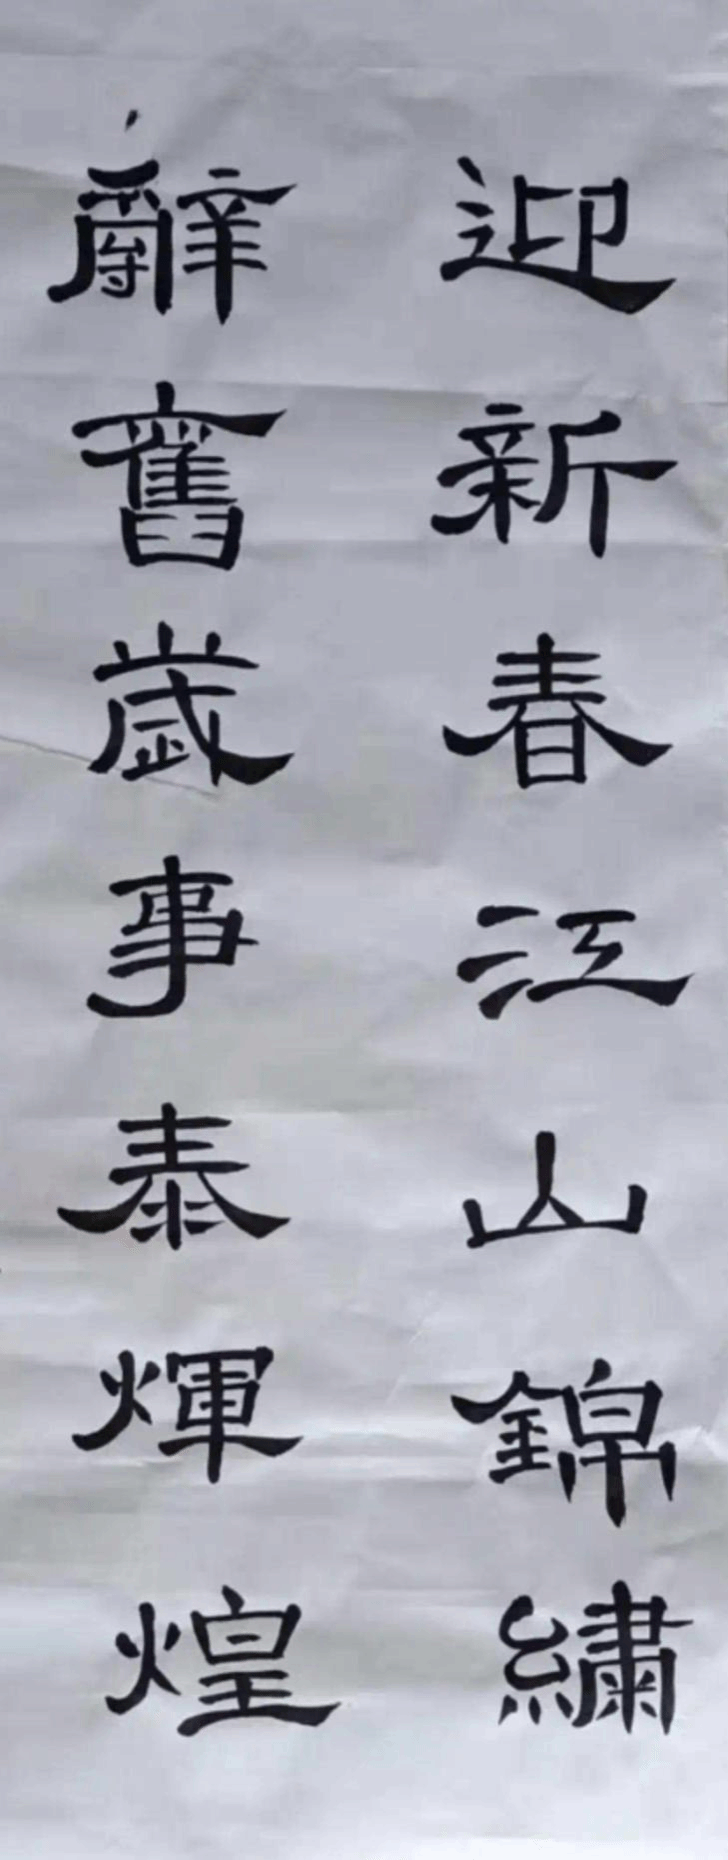 迎新春江山錦繡
辭舊歲事泰輝煌